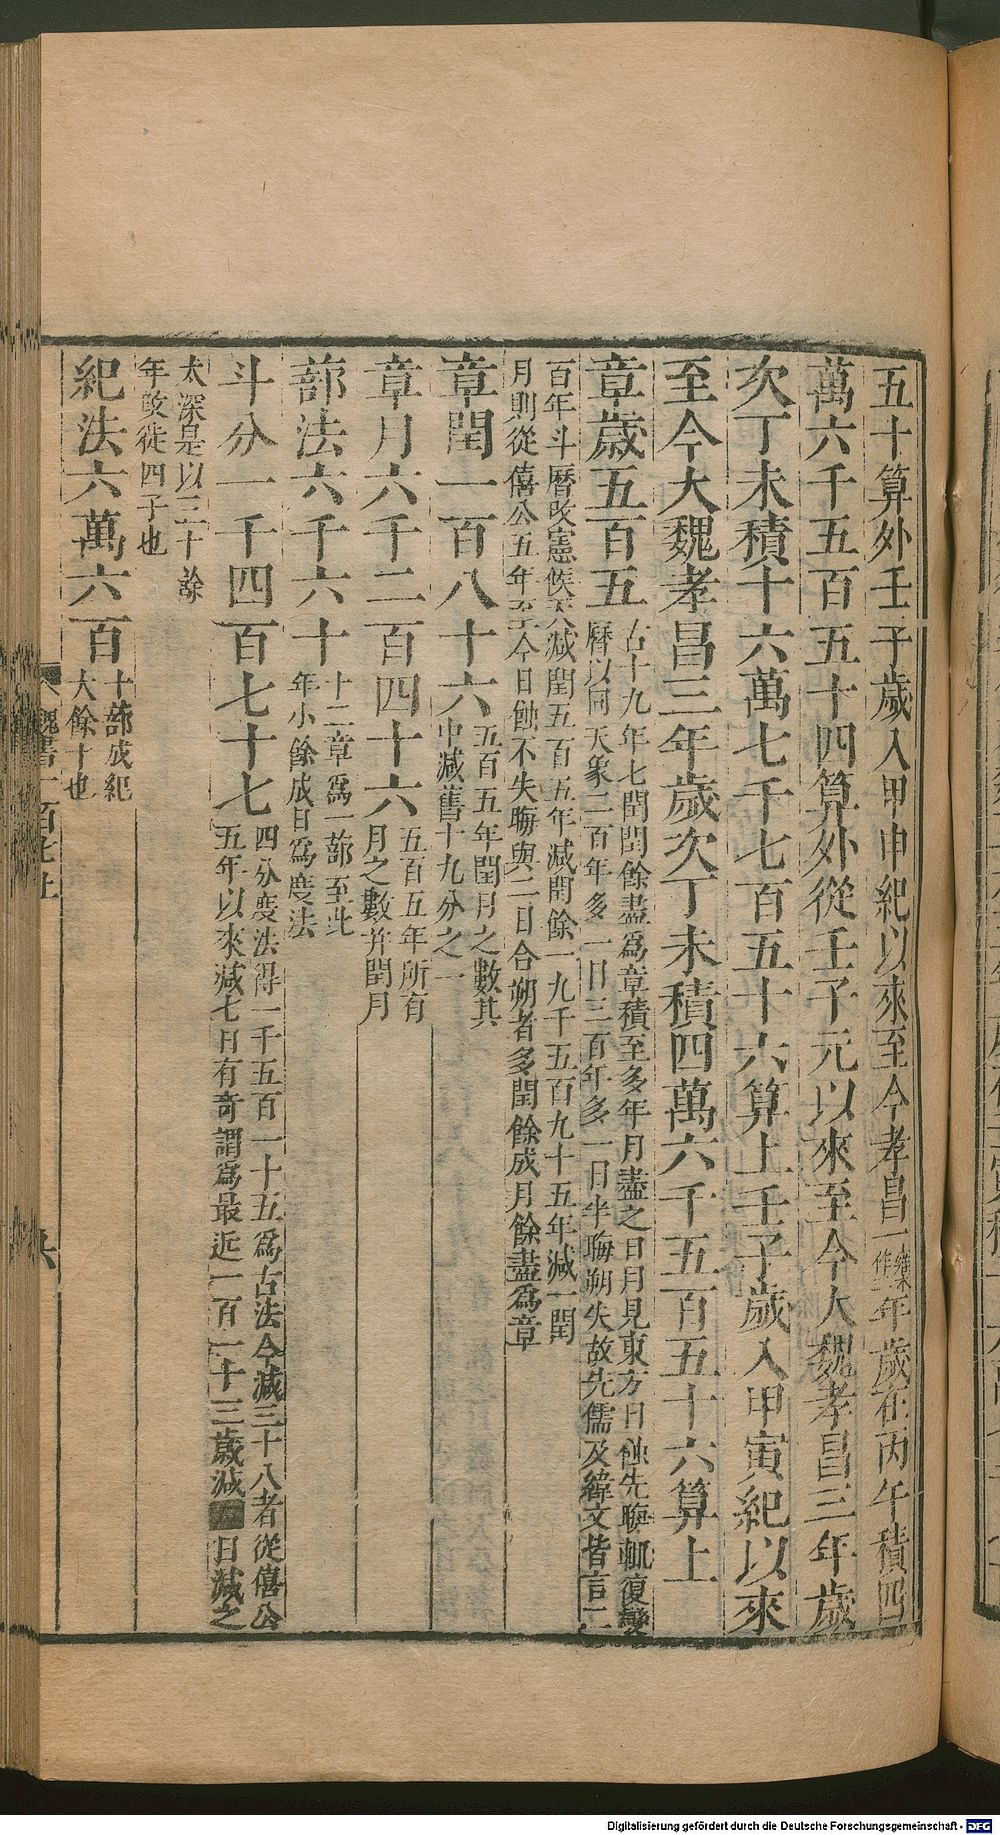 五十算外壬子歲入甲申紀以來至今孝昌二雍本作三年歲在丙午積四
萬六千五百五十四算外從壬子元以來至今大魏孝昌三年歲
次丁未積十六萬七千七百五十六算上壬子歲入甲寅紀以來
至今大魏孝昌三年歲次丁未積四萬六千五百五十六算上
章歲五百五
古十九年七閏閏餘盡爲章積至多年月盡之日月見東方日蝕先晦輒復變
曆以同天象二百年多一日三百年多一日半晦朔失故先儒及緯文皆言三
百年斗曆改憲候天減閏五百五年減閏餘一九千五百九十五年減一閏
月則從僖公五年至今日蝕不失晦與二日合朔者多閏餘成月餘盡爲章
章閏一百八十六
五百五年閏月之數其
中減舊十九分之一
章月六千二百四十六
五百五年所有
月之數并閏月
蔀法六千六十
十二章爲一蔀至此
年小餘成日爲度法
斗分一千四百七十七
四分度法得一千五百一十五爲古法今減三十八者從僖公
五年以來減七日有奇謂爲最近一百一十三歲減 日減之
太深是以三十餘
年改從四子也
紀法六萬六百
十蔀成紀
大餘十也
魏書一百七上
Digitalisierung gefördert durch die Deutsche Forschungsgemeinschaft - DFG